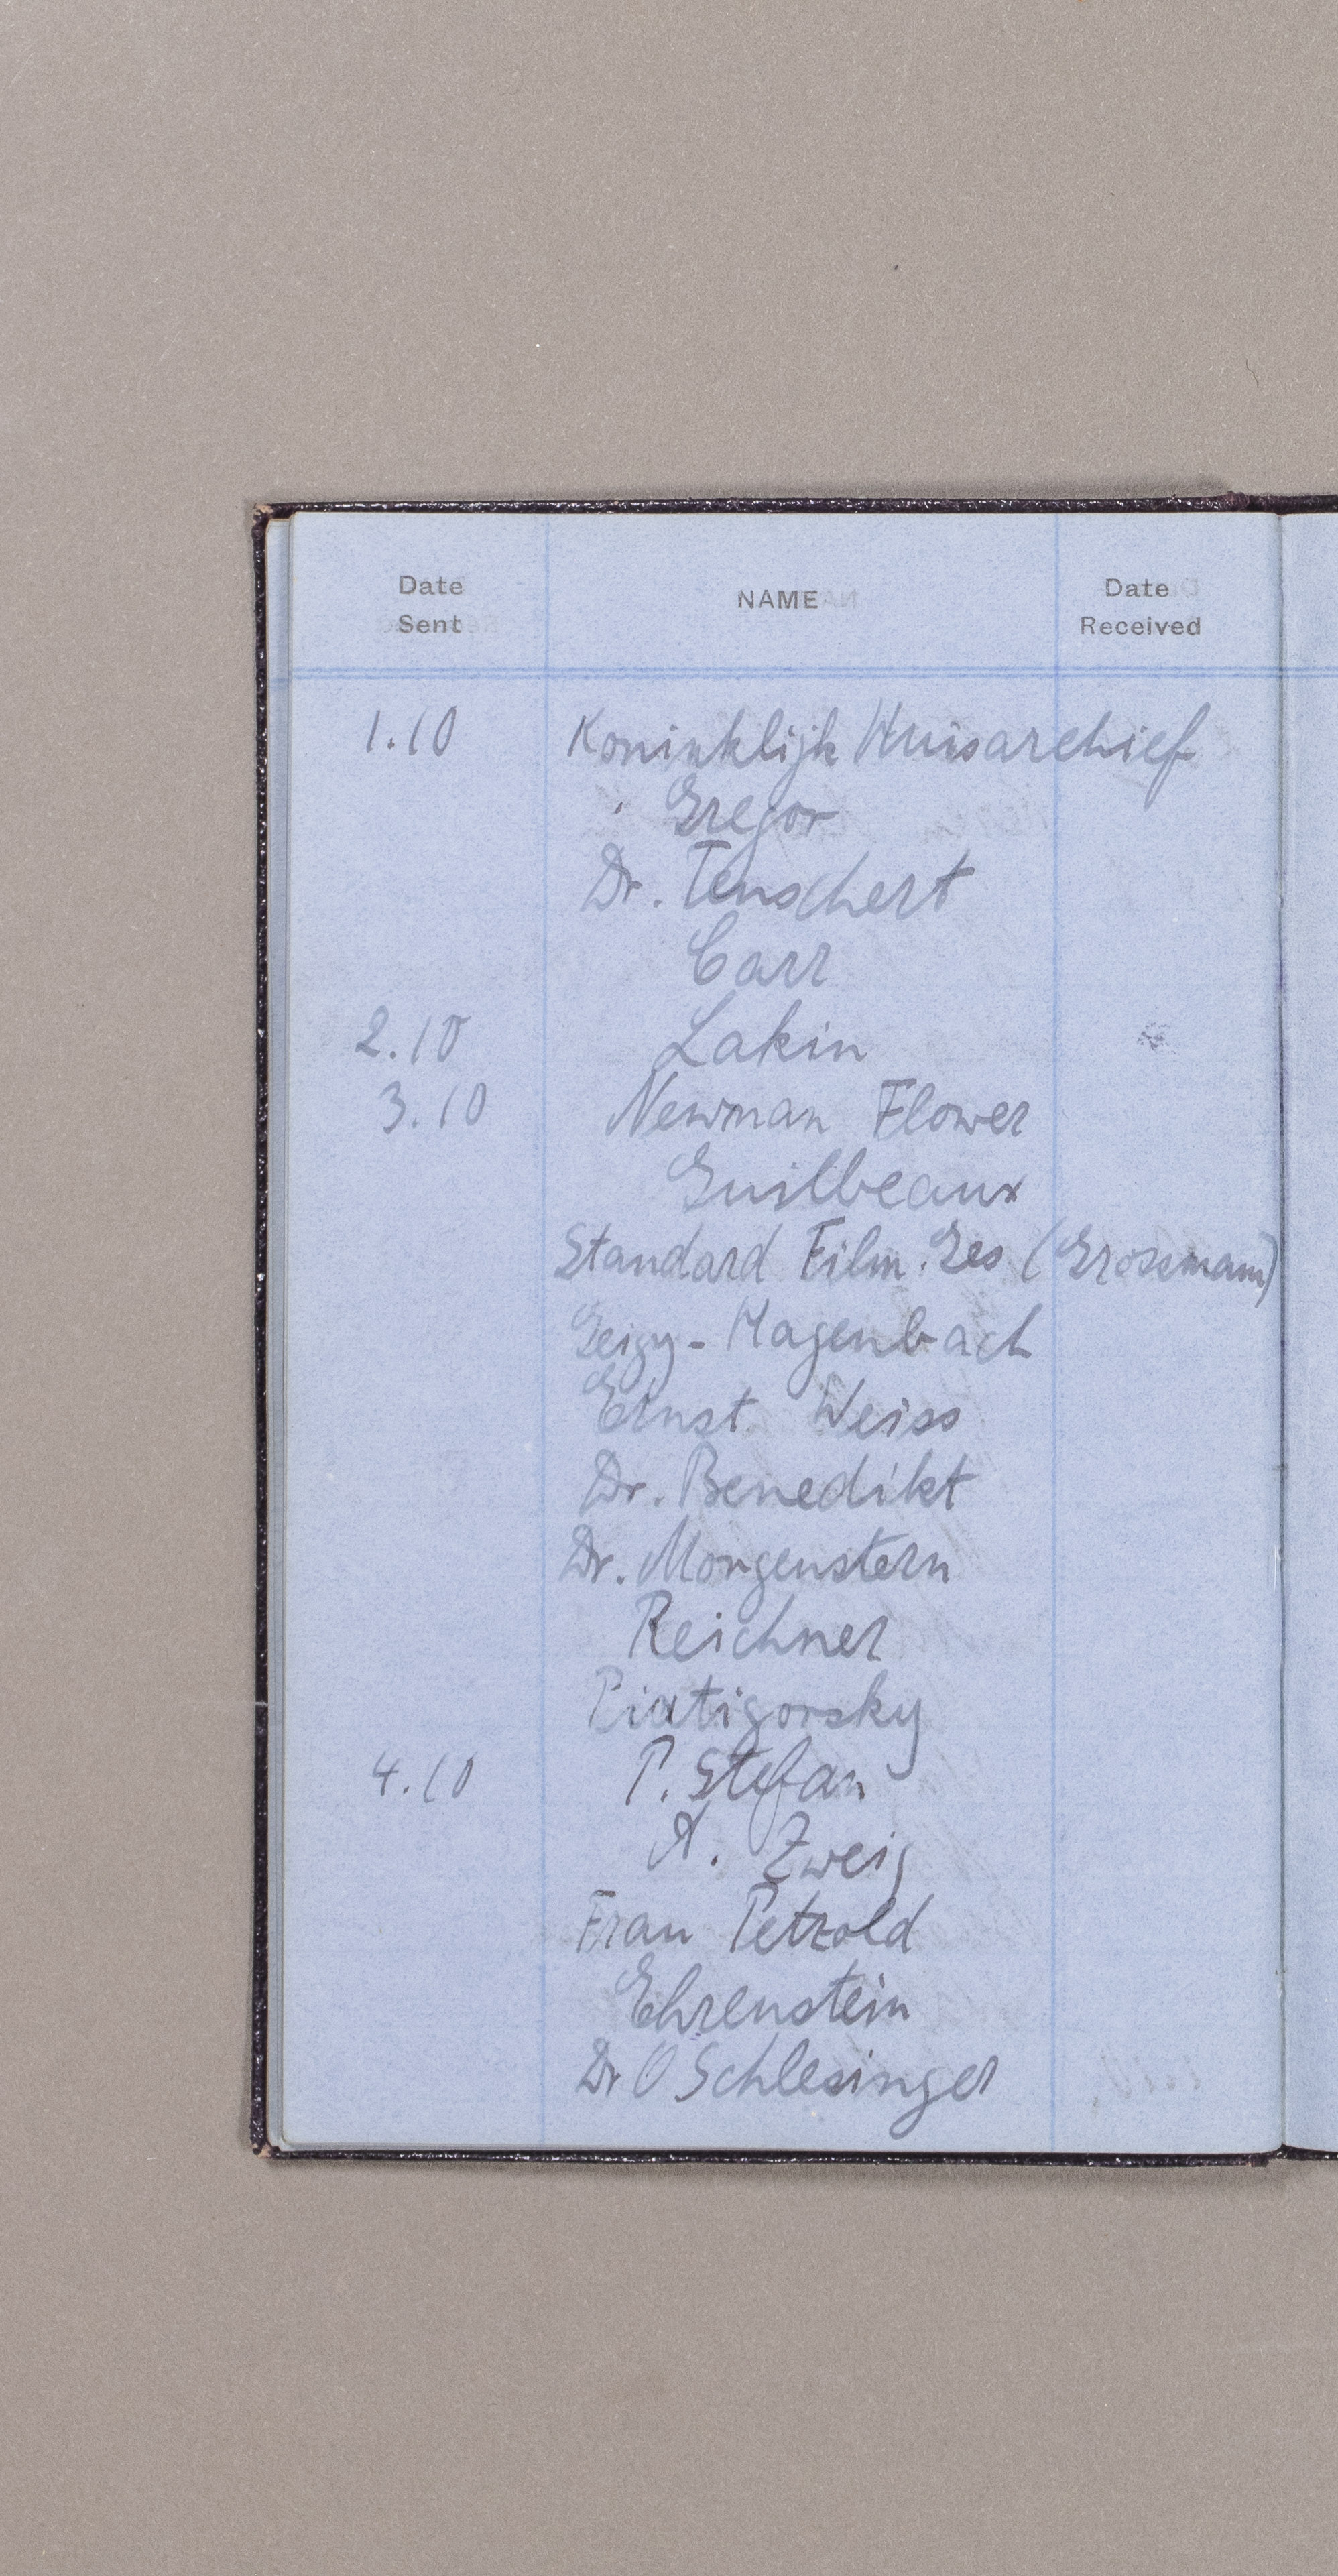 Date Sent NAME Date Received
1.10 Koninklijk Huisarchief
Gregor
Dr. Tenschert
Carr
2.10 Lakin
3.10 Newman Flower
Guilbeaux
Standard Film. Ges (Grossmann)
Geigy-Hagenbach
Ernst Weiss
Dr. Benedikt
Dr. Morgenstern
Reichner
Piatigorsky
4.10 P. Stefan
A. Zweig
Frau Petzold
Ehrenstein
Dr O Schlesinger